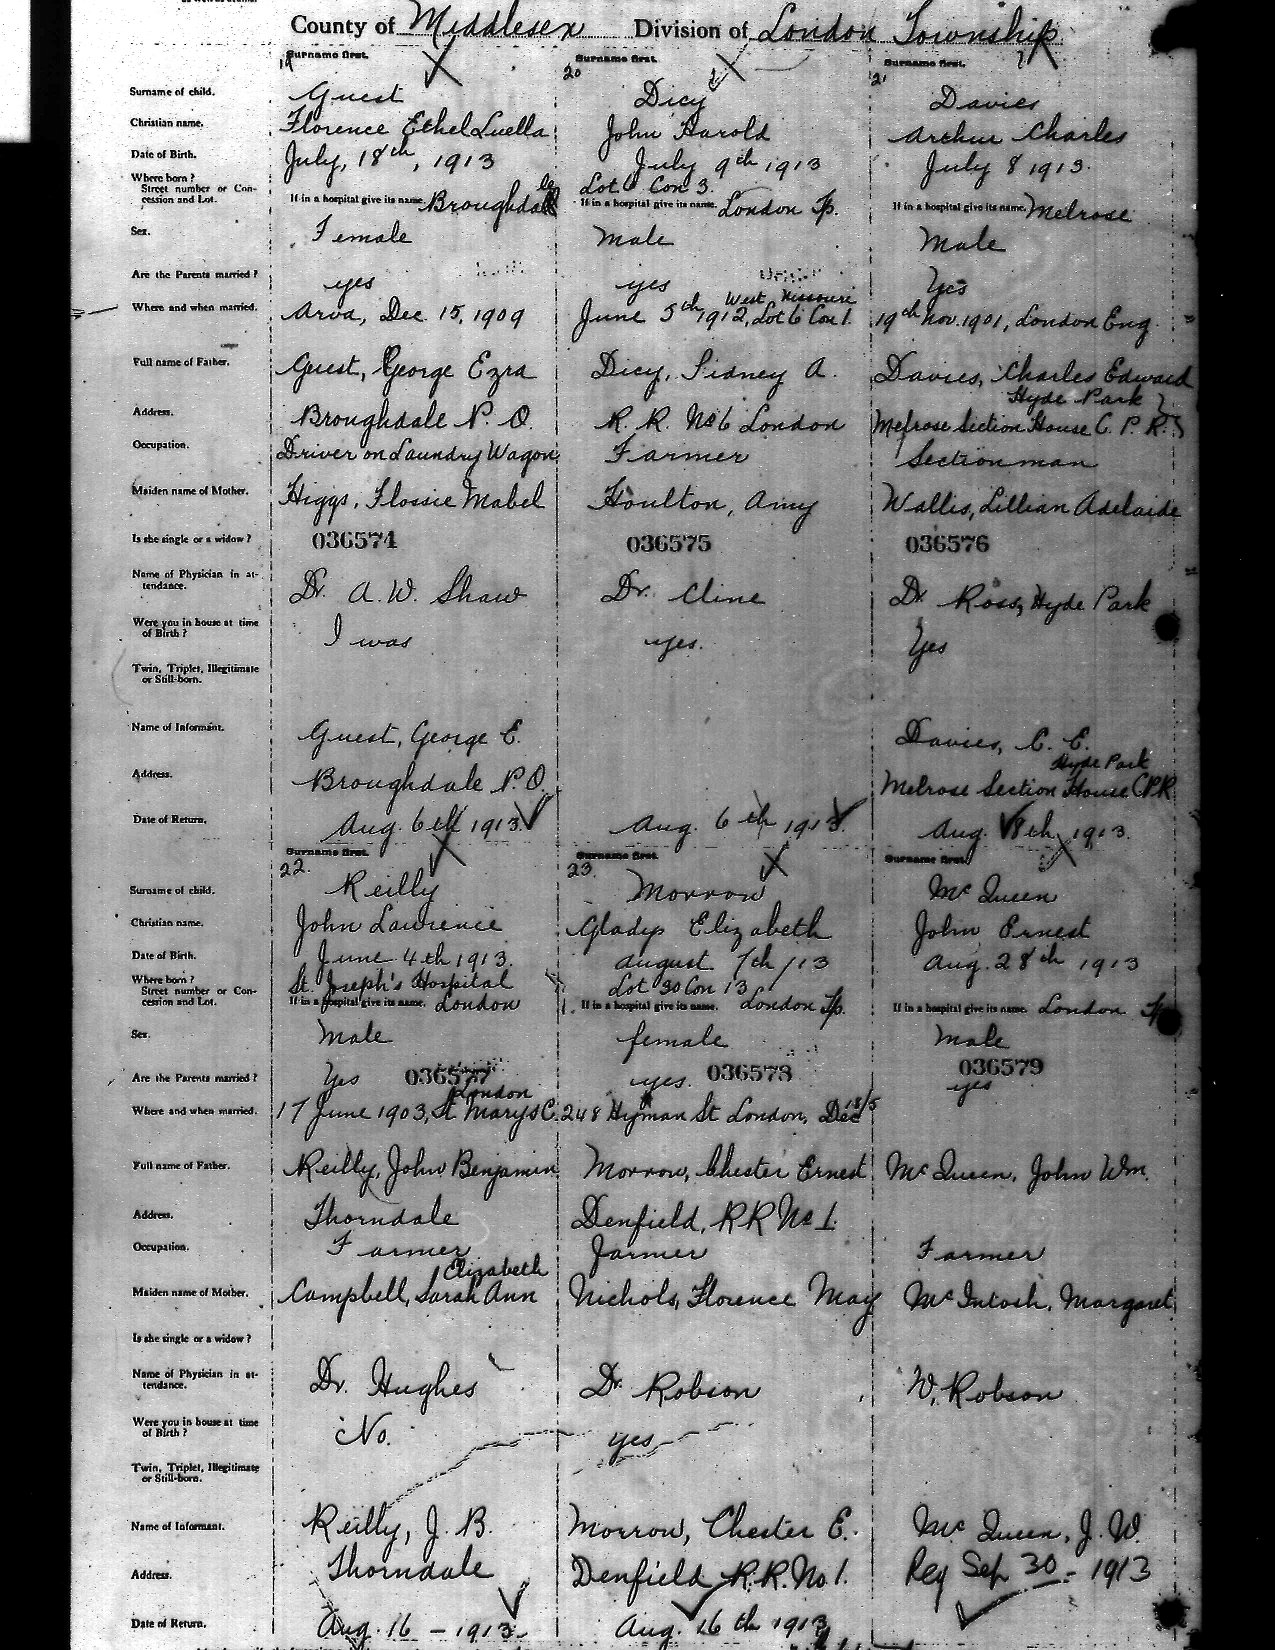 County of Middlesex Division of London Township
Surname first. Surname first. Surname first.
19 20 21
Surname of child. Guest Dicy Davies
Christian name. Florence Ethel Luella John Harold Arthur Charles
Date of Birth. July, 18th, 1913 July 9th 1913 July 8 1913.
Where born? Lot 6 Con 3.
Street number or Con-
cession and Lot. If in a hospital give its name. Broughdale If in a hospital give its name. London Tp. If in a hospital give its name. Melrose
Sex. Female Male Male
Are the Parents married? yes yes Yes
West Nissouri
Where and when married. Arva, Dec. 15, 1909 June 5th 1912, Lot 6 Con 1. 19th Nov. 1901, London Eng.
Full name of Father. Guest, George Ezra Dicy, Sidney A. Davies, Charles Edward
Hyde Park
Address. Broughdale P. O. R. R. No 6 London Melrose Section House C. P. R.
Occupation. Driver on Laundry Wagon Farmer Sectionman
Maiden name of Mother. Higgs, Flossie Mabel Houlton, Amy Wallis, Lillian Adelaide
Is she single or a widow? 036574 036575 036576
Name of Physician in at-
tendance. Dr. A. W. Shaw Dr. Cline Dr. Ross, Hyde Park
Were you in house at time
of Birth? I was yes. Yes
Twin, Triplet, Illegitimate
or Still-born.
Name of Informant. Guest, George E. Davies, C. E.
Hyde Park
Address. Broughdale P.O. Melrose Section House C.P.R.
Date of Return. Aug. 6th 1913 Aug. 6th 1913 Aug. 8th, 1913.
Surname first. Surname first. Surname first.
22. 23.
Surname of child. Reilly Morrow McQueen
Christian name. John Lawrence Gladys Elizabeth John Ernest
Date of Birth. June 4th 1913. August 7th /13 Aug. 28th 1913
Where born? St. Joseph's Hospital Lot 30 Con 13
Street number or Con-
cession and Lot. If in a hospital give its name. London If in a hospital give its name. London Tp. If in a hospital give its name. London Tp
Sex. Male female Male
Are the Parents married? Yes 036577 yes. 036578 036579 yes
London
Where and when married. 17 June 1903, St Mary's C. 248 Hyman St London, Dec 18/5
Full name of Father. Reilly, John Benjamin Morrow, Chester Ernest McQueen, John Wm.
Address. Thorndale Denfield, R R No 1.
Occupation. Farmer farmer Farmer
Elizabeth
Maiden name of Mother. Campbell, Sarah Ann Nichols, Florence May McIntosh, Margaret
Is she single or a widow?
Name of Physician in at-
tendance. Dr. Hughes Dr. Robson W. Robson
Were you in house at time
of Birth? No. yes
Twin, Triplet, Illegitimate
or Still-born.
Name of Informant. Reilly, J. B. Morrow, Chester E. McQueen, J. W.
Address. Thorndale Denfield R.R. No 1. Reg Sep 30 - 1913
Date of Return. Aug. 16 - 1913 Aug. 16th 1913